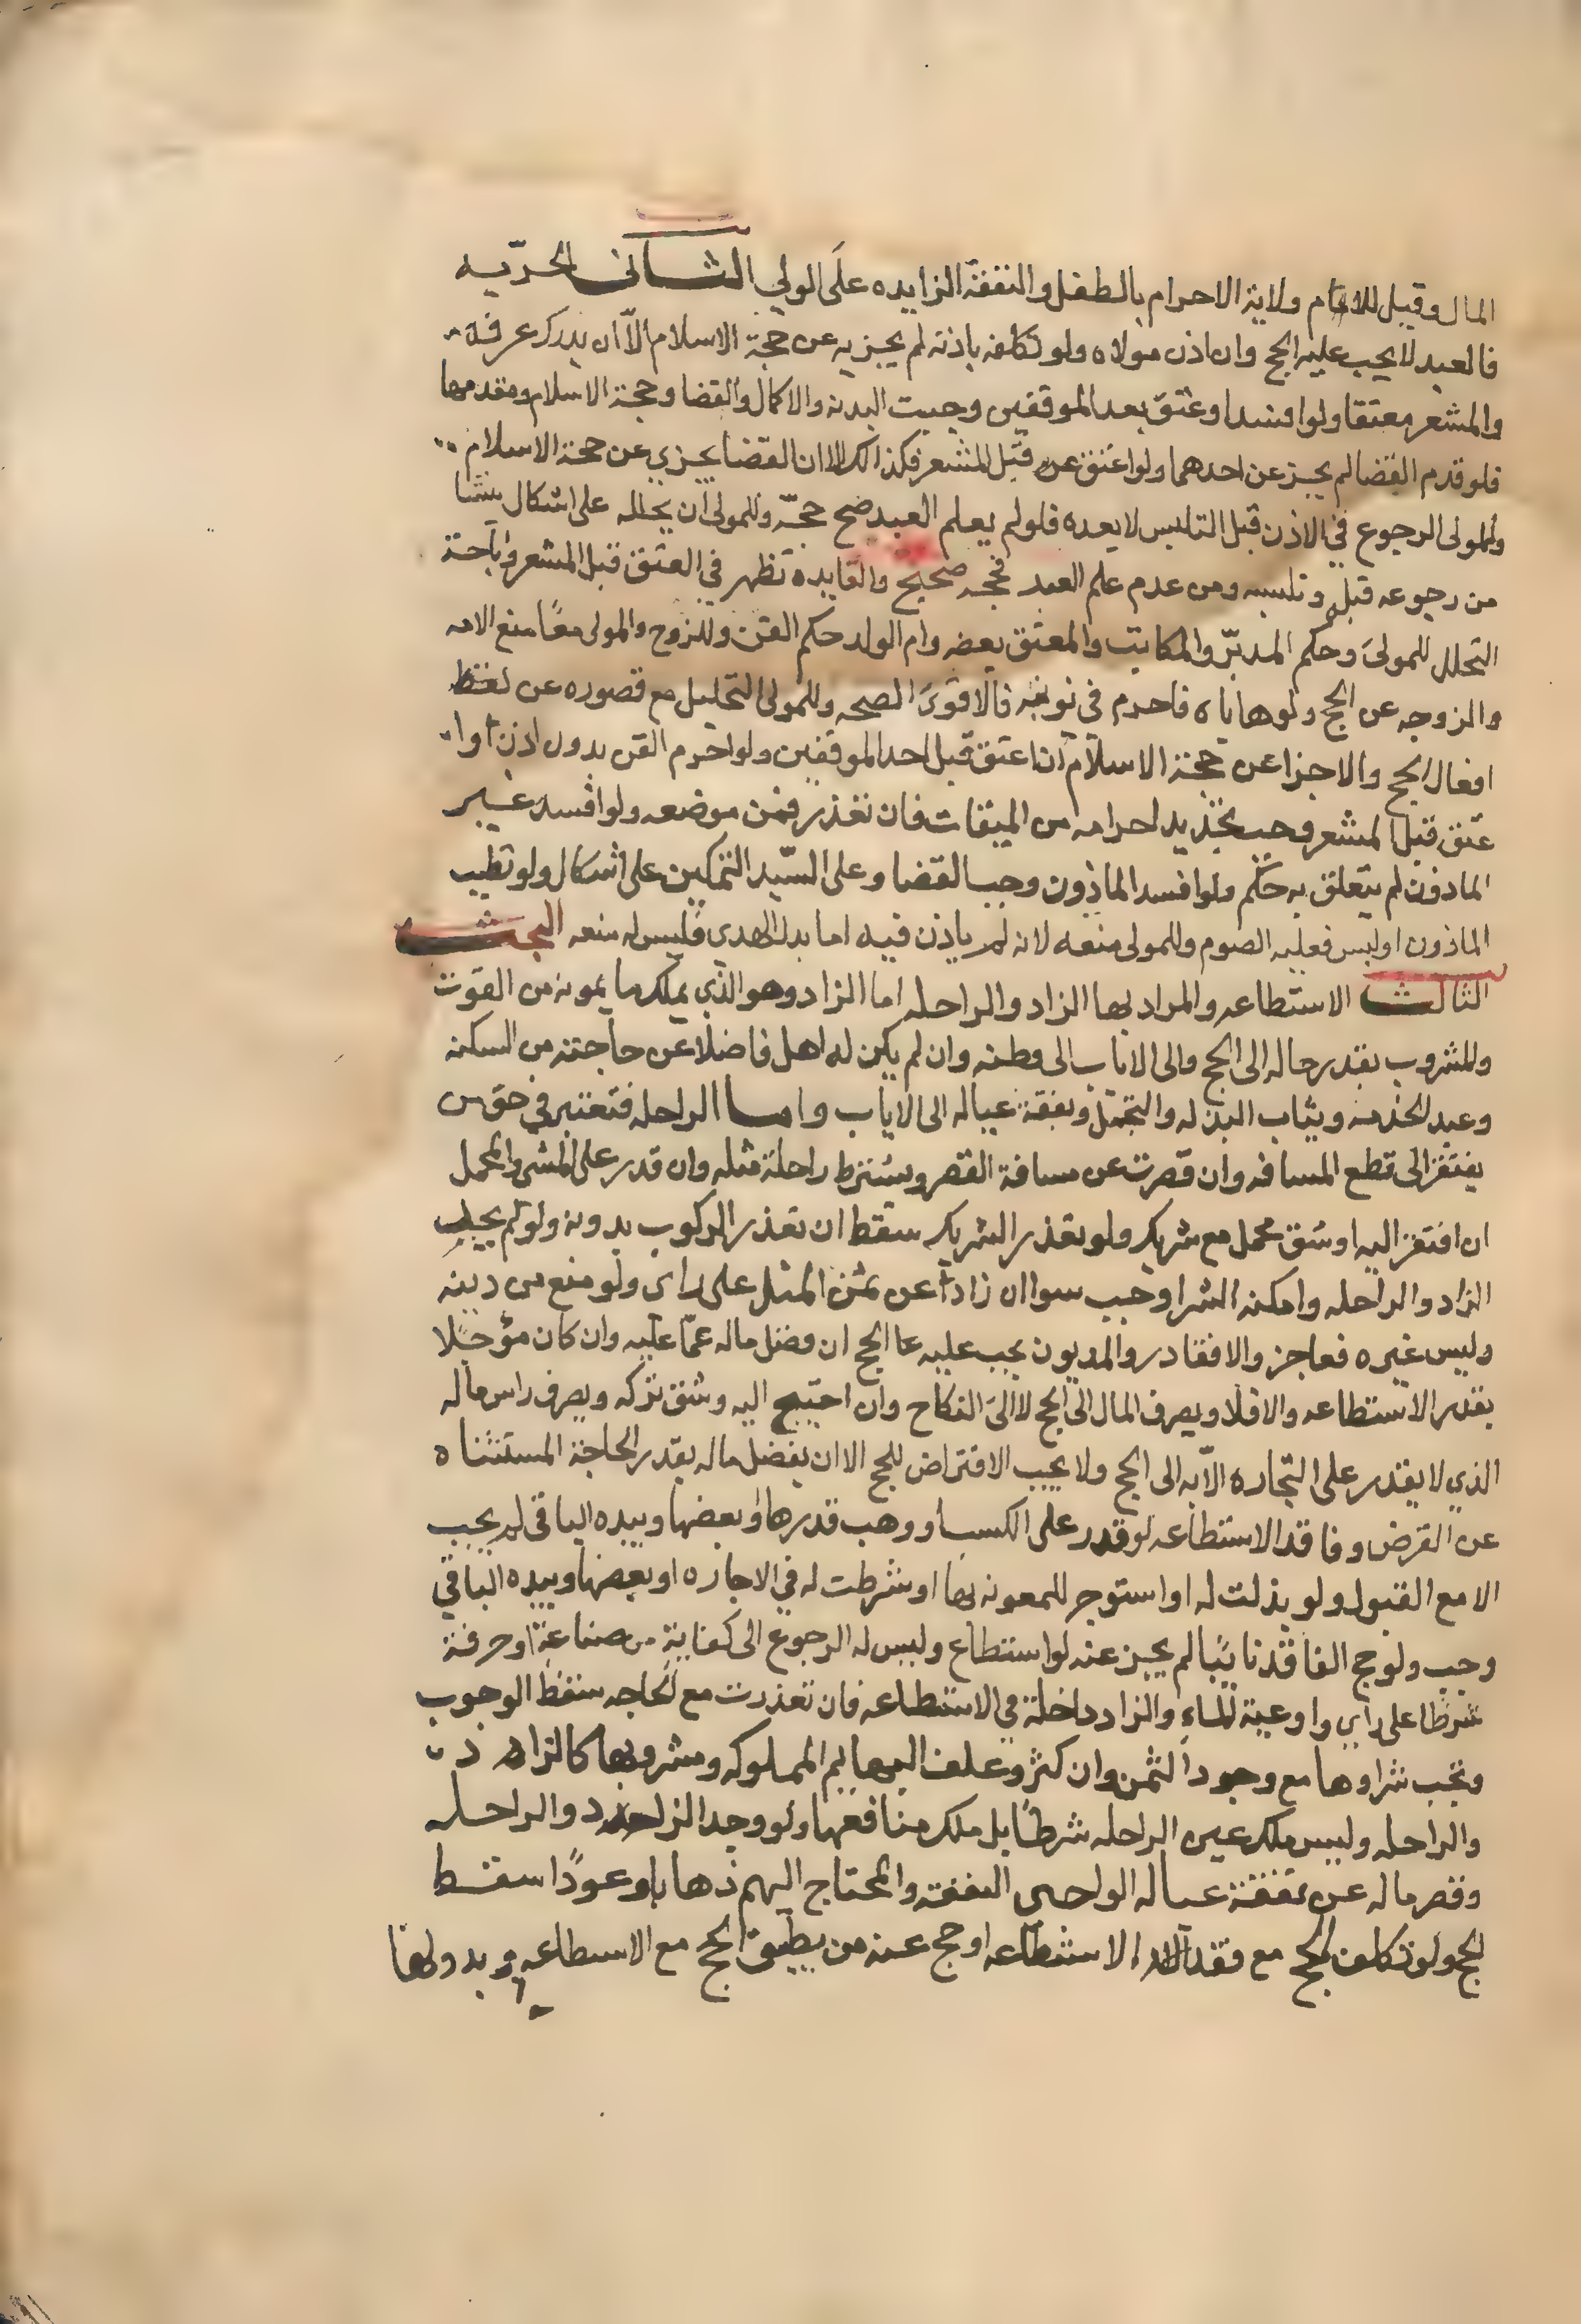 المال وقيل للام ولاية الاحرام بالطفل والنفقة الزايده على الولي الثاني الحريه
فالعبد لا يجب عليه الحج وان اذن مولاه ولو تكلفه باذنه لم يجزيه عن حجة الاسلام الا ان يدرك عرفة
والمشعر معتقا ولو افسد اوعتق بعد الموقفين وجبت البدنه والاكمال والقضا وحجة الاسلام ومقدمها
فلو قدم القضا لم يجز عن احدهما ولو اعتق قبل المشعر فكذالك الا ان القضا يجزي عن حجة الاسلام
وللمولى الرجوع في الاذن قبل التلبس لا بعده فلو لم يعلم العبد صح حجه وللمولى ان يحلله على اشكال ينشا
من رجوعه قبل وتلبسه ومن عدم علم العبد فحجه صحيح والفايده تظهر في العتق قبل المشعر واباحة
التحلل للمولى وحكم المدبر والمكاتب والمعتق بعضه وام الولد حكم القن وللزوج والمولى معا منع الامه
والزوجه عن الحج ولو هاياه فاحرم في نوبته فالاقوى الصحه وللمولى التحليل مع قصوره عن
افعال الحج والاجزا عن حجة الاسلام ان اعتق قبل احد الموقفين ولو احرم القن بدون اذن
عتق قبل المشعر وجب تجديد احرامه من الميقات فان تعذر فمن موضعه ولو افسد غير
الماذون لم يتعلق به حكم ولو افسد الماذون وجب القضا وعلى السيد التمكين على اشكال ولو تطيب
الماذون او لبس فعليه الصوم وللمولى منعه لانه لم ياذن فيه اما بدل الهدي فليس له منعه البحث
الثالث الاستطاعه والمراد بها الزاد والراحله اما الزاد وهو الذي يملك ما يمونه من القوت
والمشروب بقدر حاله الى الحج والى الاياب الى وطنه وان لم يكن له اهل فاضلا عن حاجته من السكنه
وعبد الخدمه وثياب البذله والتجمل ونفقة عياله الى الاياب واما الراحله فتعتبر في حق من
يفتقر الى قطع المسافه وان قصرت عن مسافة القصر ويشترط راحلة مثله وان قدر على المشي والمحمل
ان افتقر اليه او شق محمل مع شريك ولو تعذر الشريك سقط ان تعذر الركوب بدونه ولو لم يجد
الزاد والراحله وامكنه الشرا وجب سوا ان زاد عن ثمن المثل على راى ولو منع من دينه
وليس غيره فعاجز والا فقادر والمديون يجب عليه الحج ان فضل ماله عما عليه وان كان مؤجلا
بقدر الاستطاعه والا فلا ويصرف المال الى الحج لا الى النكاح وان احتيج اليه وشق تركه ويصرف راس ماله
الذي لا يقدر على التجاره الا به الى الحج ولا يجب الاقتراض للحج الا ان يفضل ماله بقدر الحاجة المستثناه
عن القرض وفاقد الاستطاعه لو قدر على الكسب او وهب قدرها او بعضها وبيده الباقي لم يجب
الا مع القبول ولو بذلت له او استوجر للمعونه بها او شرطت له في الاجاره او بعضها وبيده الباقي
وجب ولو حج الفاقد نايبا لم يجز عنه لو استطاع وليس له الرجوع الى كفاية من صناعة او حرفة
شرطا على راي واوعية الماء والزاد داخلة في الاستطاعه فان تعذرت مع الحاجه سقط الوجوب
وتجب شراوها مع وجود الثمن وان كثر وعلف البهايم المملوكه ومشروبها كالزاد
والراحله وليس ملك عين الراحله شرطا بل ملك منافعها ولو وجد الزاد والراحله
وقصر ماله عن نفقة عياله الواجبى النفقه والمحتاج اليهم ذهابا وعودا سقط
الحج ولو تكلف الحج مع فقد الاستطاعه او حج عنه من يطيق الحج مع الاستطاعه وبدونها